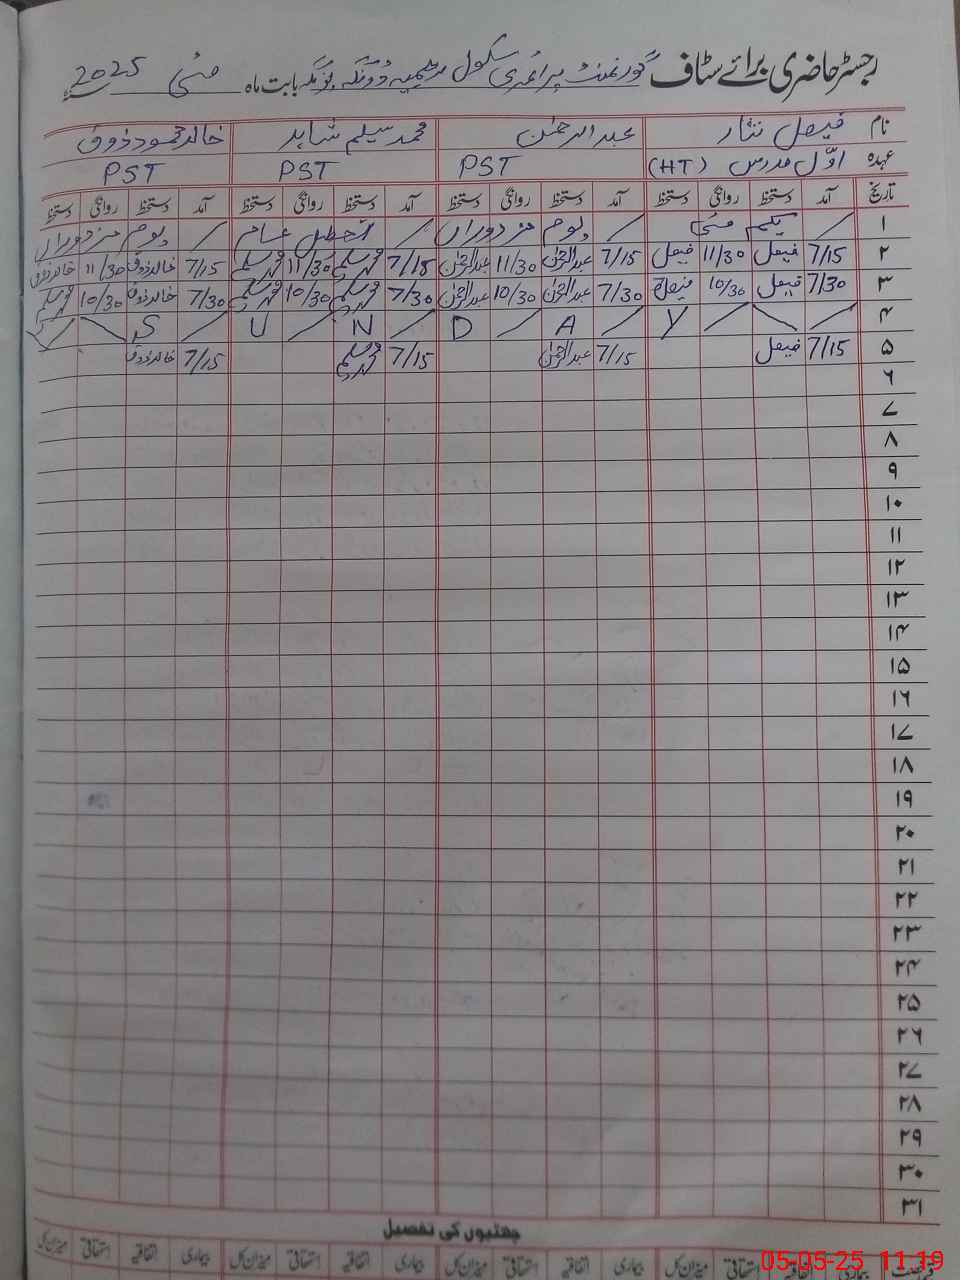 رجسٹر حاضری برائے سٹاف گورنمنٹ پرائمری سکول بابت ماہ مئی 2025
نام فیصل نثار عبدالرحمٰن محمد سلیم شاہد خالد محمود ذوق
عہدہ اوّل مدرس (HT) PST PST PST
تاریخ آمد دستخط روانگی دستخط آمد دستخط روانگی دستخط آمد دستخط روانگی دستخط آمد دستخط روانگی دستخط
۱ یکم مئی یوم مزدوراں تعطیل عام یوم مزدوراں
۲ 7/15 فیصل 11/30 فیصل 7/15 عبدالرحمٰن 11/30 عبدالرحمٰن 7/15 محمد سلیم 11/30 محمد سلیم 7/15 خالد ذوق 11/30 خالد ذوق
۳ 7/30 فیصل 10/30 فیصل 7/30 عبدالرحمٰن 10/30 عبدالرحمٰن 7/30 محمد سلیم 10/30 محمد سلیم 7/30 خالد ذوق 10/30 محمد سلیم
۴ S U N D A Y
۵ 7/15 فیصل 7/15 عبدالرحمٰن 7/15 محمد سلیم 7/15 خالد ذوق
۶
۷
۸
۹
۱۰
۱۱
۱۲
۱۳
۱۴
۱۵
۱۶
۱۷
۱۸
۱۹
۲۰
۲۱
۲۲
۲۳
۲۴
۲۵
۲۶
۲۷
۲۸
۲۹
۳۰
۳۱
چھٹیوں کی تفصیل
بیماری اتفاقیہ استحقاقی میزان کل بیماری اتفاقیہ استحقاقی میزان کل بیماری اتفاقیہ استحقاقی میزان کل بیماری اتفاقیہ استحقاقی میزان کل
05-05-25 11:19